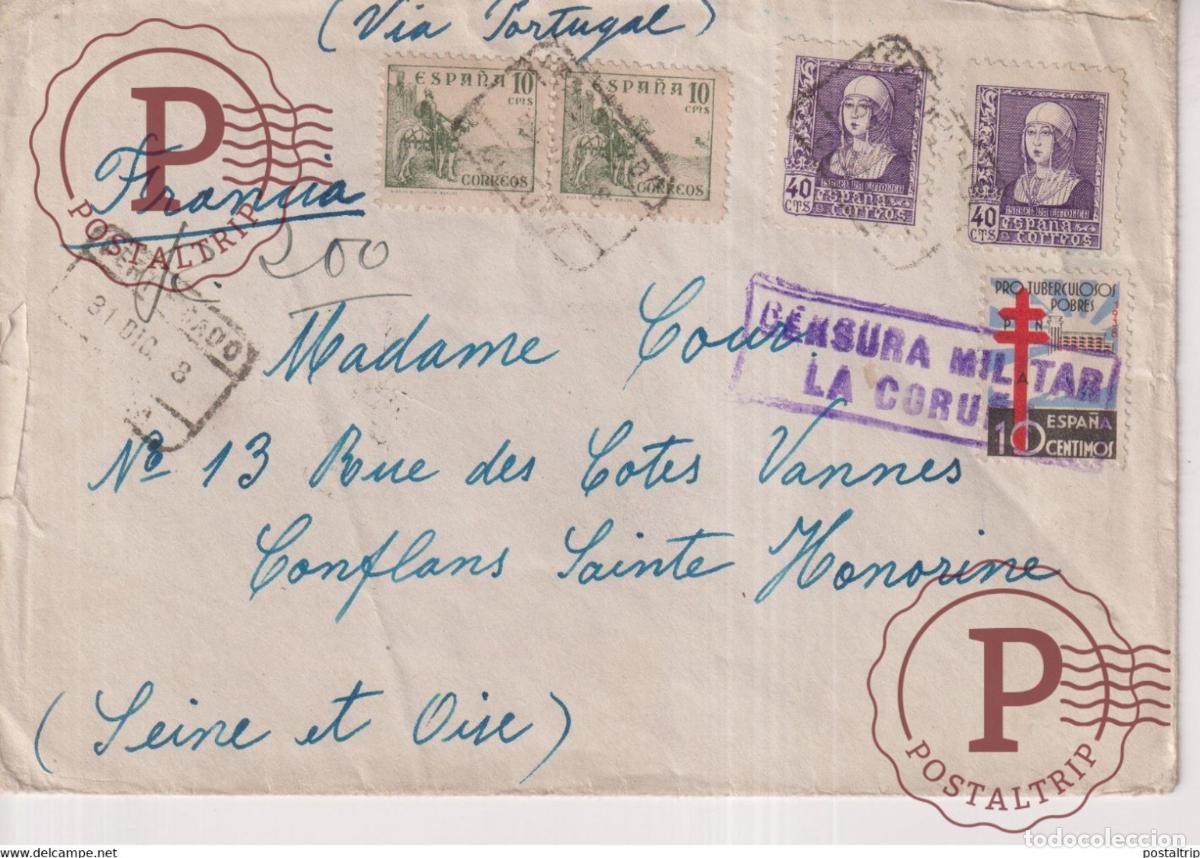 (Via Portugal)
ESPAÑA 10 CMS CORREOS
ESPAÑA 10 CMS CORREOS
40 CTS ISABEL LA CATOLICA España Correos
40 CTS ISABEL LA CATOLICA España Correos
P
POSTALTRIP
Francia
200
31 DIC. 8
PRO TUBERCULOSOS
POBRES
ESPAÑA
10 CENTIMOS
CENSURA MILITAR
LA CORUÑ
Madame Cour
Nº 13 Rue des Cotes Vannes
Conflans Sainte Honorine
(Seine et Oise)
P
POSTALTRIP
todocoleccion
postaltrip